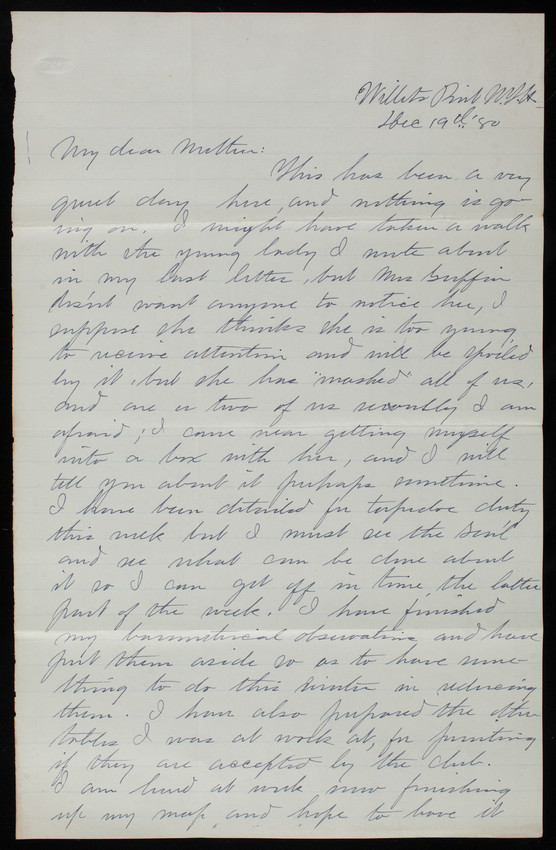 Willets Point N.Y.H.
Dec 19th '80
My dear Mother:
This has been a very
quiet day here, and nothing is go-
ing on. I might have taken a walk
with the young lady I wrote about
in my last letter, but Mrs Griffin
dosn't want anyone to notice her, I
suppose she thinks she is too young
to receive attention and will be spoiled
by it, but she has "mashed" all of us,
and one or two of us seriously I am
afraid; I came near getting myself
into a box with her, and I will
tell you about it perhaps sometime.
I have been detailed for torpedoe duty
this week but I must see the Gen'l
and see what can be done about
it so I can get off in time, the latter
part of the week. I have finished
my barometrical observations and have
put them aside so as to have some-
thing to do this winter in reducing
them. I have also prepared the
tables I was at work at, for printing
if they are accepted by the club.
I am hard at work now finishing
up my map and hope to have it